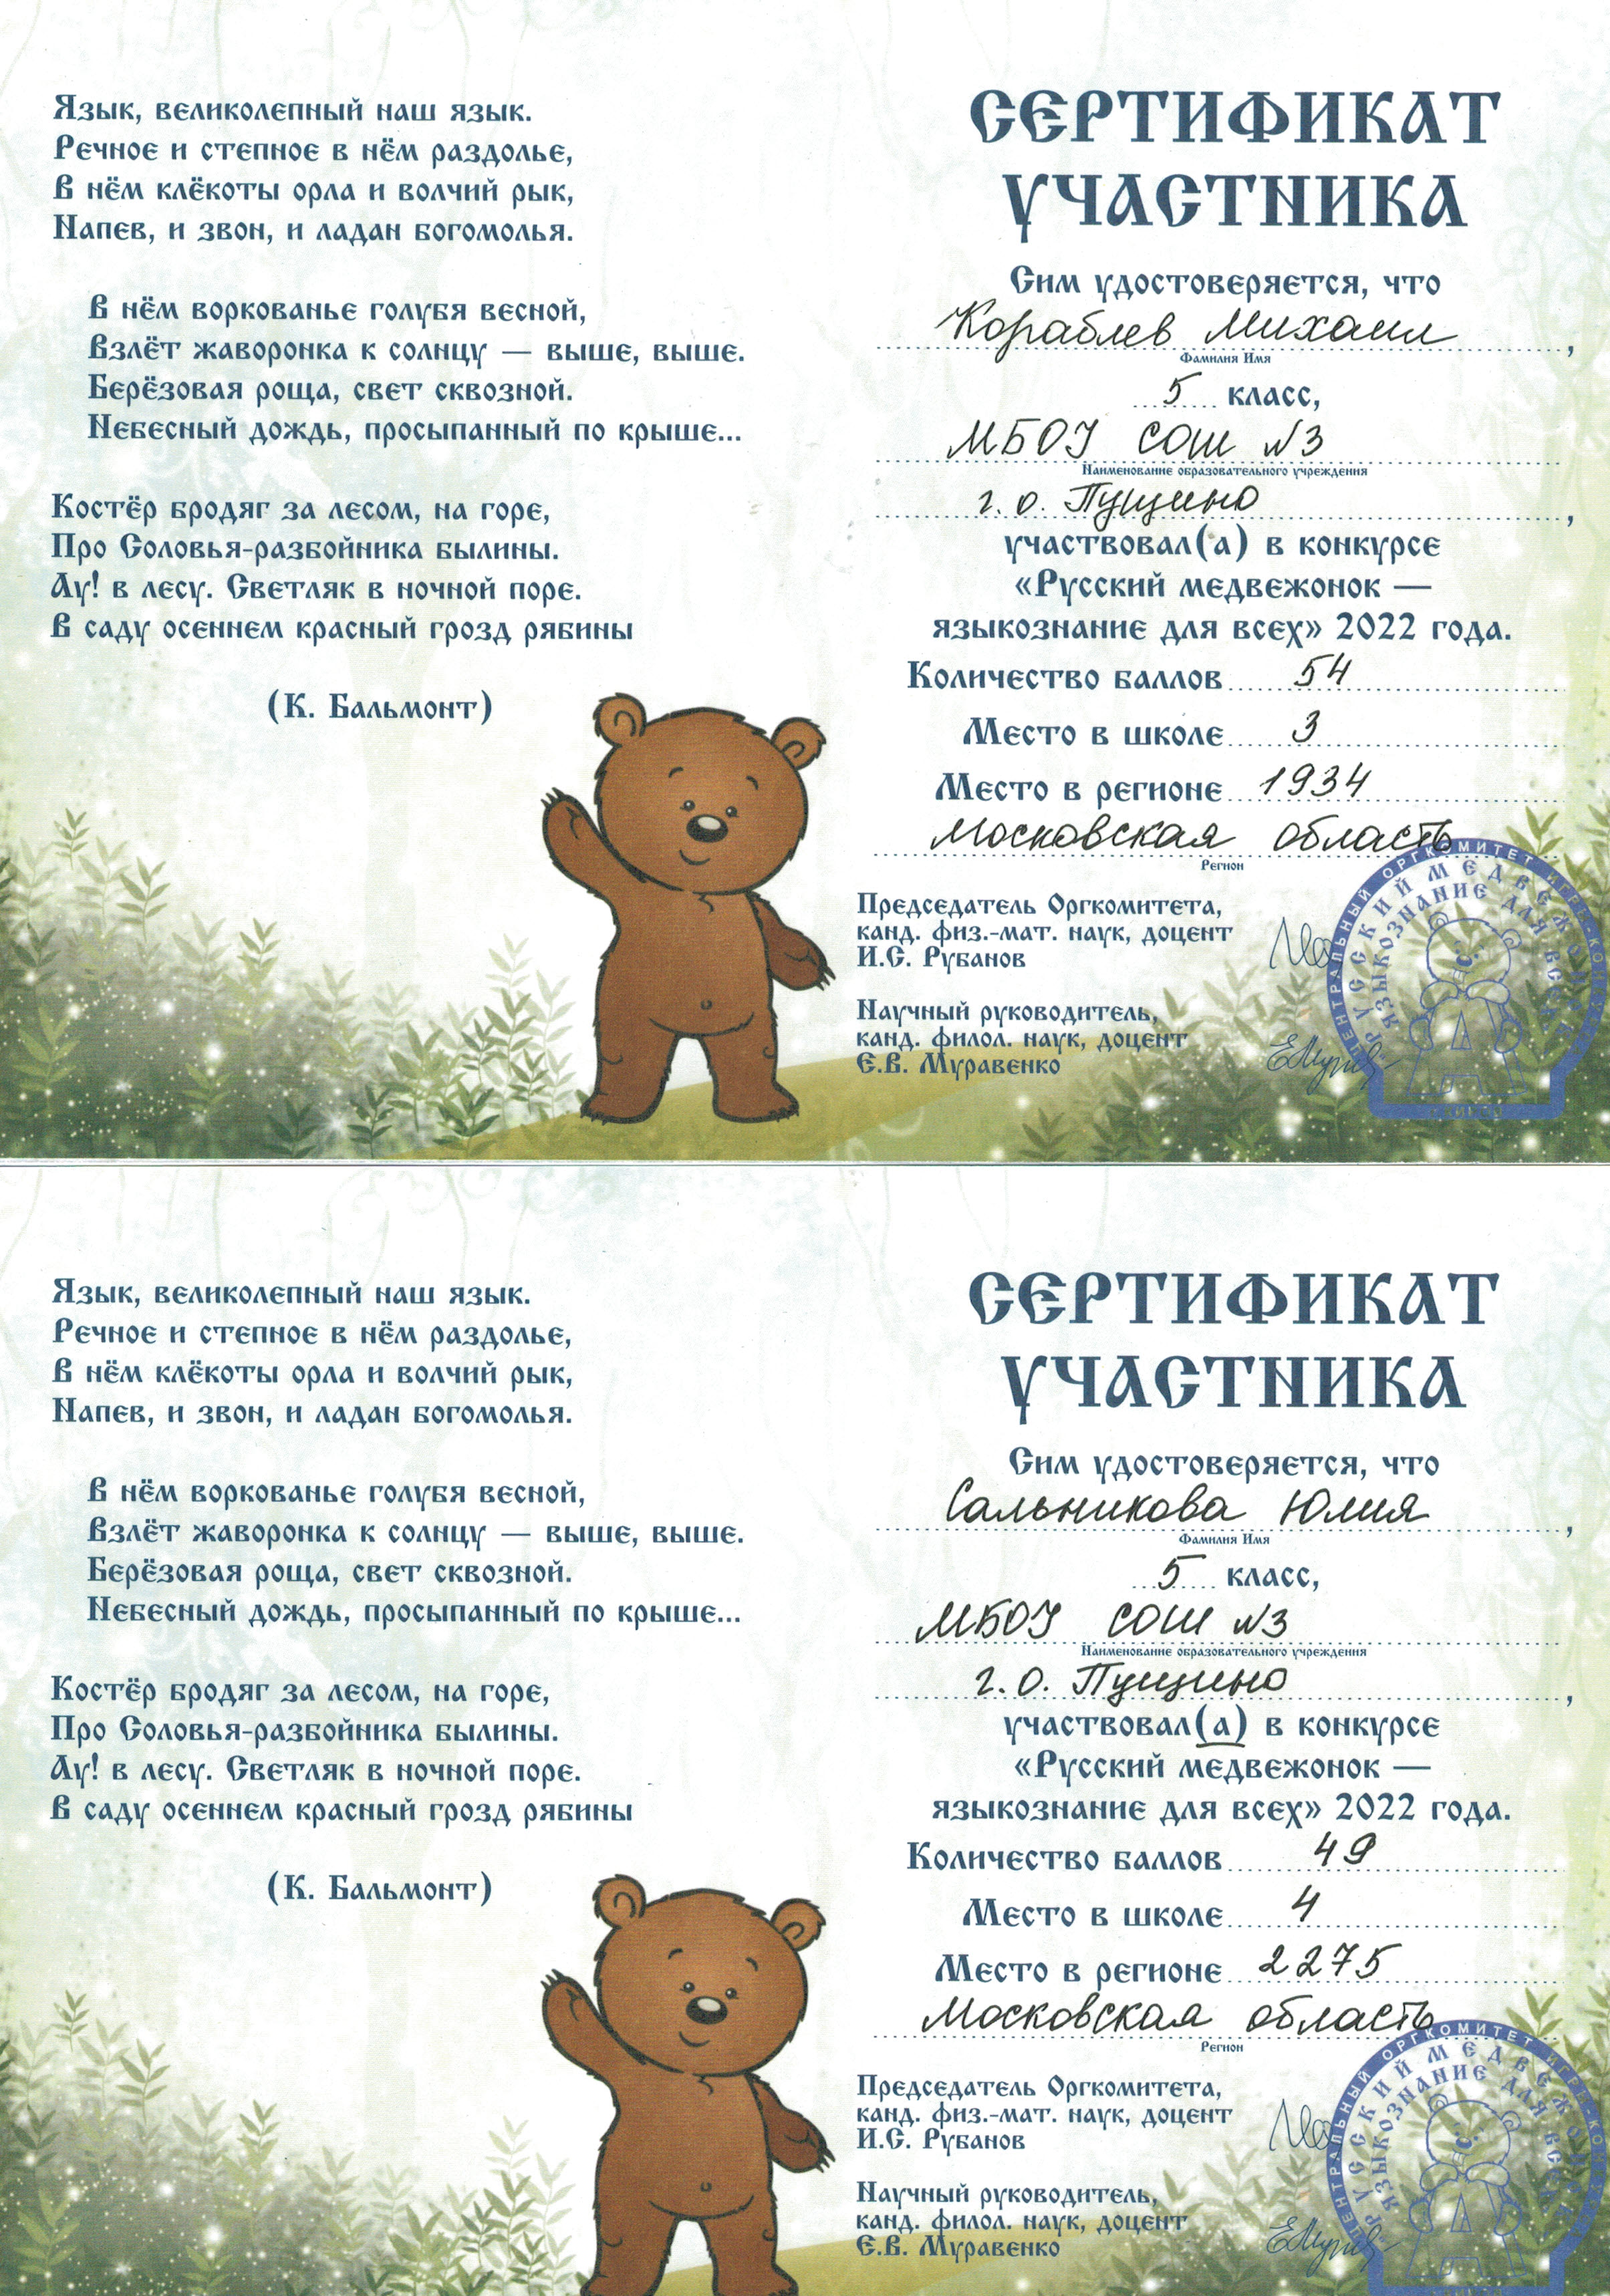 Язык, великолепный наш язык.
Речное и степное в нём раздолье,
В нём клёкоты орла и волчий рык,
Напев, и звон, и ладан богомолья.
В нём воркованье голубя весной,
Взлёт жаворонка к солнцу — выше, выше.
Берёзовая роща, свет сквозной.
Небесный дождь, просыпанный по крыше...
Костёр бродяг за лесом, на горе,
Про Соловья-разбойника былины.
Ау! в лесу. Светляк в ночной поре.
В саду осеннем красный грозд рябины
(К. Бальмонт)
СЕРТИФИКАТ
УЧАСТНИКА
Сим удостоверяется, что
Кораблев Михаил,
Фамилия Имя
5 класс,
МБОУ СОШ №3
Наименование образовательного учреждения
г. о. Пущино,
участвовал(а) в конкурсе
«Русский медвежонок —
языкознание для всех» 2022 года.
Количество баллов 54
Место в школе 3
Место в регионе 1934
Московская область
Регион
Председатель Оргкомитета,
канд. физ.-мат. наук, доцент
И.С. Рубанов
Научный руководитель,
канд. филол. наук, доцент
Е.В. Муравенко
ЦЕНТРАЛЬНЫЙ ОРГКОМИТЕТ ИГРЫ-КО
РУССКИЙ МЕДВЕЖОНОК
ЯЗЫКОЗНАНИЕ ДЛЯ ВСЕХ
Язык, великолепный наш язык.
Речное и степное в нём раздолье,
В нём клёкоты орла и волчий рык,
Напев, и звон, и ладан богомолья.
В нём воркованье голубя весной,
Взлёт жаворонка к солнцу — выше, выше.
Берёзовая роща, свет сквозной.
Небесный дождь, просыпанный по крыше...
Костёр бродяг за лесом, на горе,
Про Соловья-разбойника былины.
Ау! в лесу. Светляк в ночной поре.
В саду осеннем красный грозд рябины
(К. Бальмонт)
СЕРТИФИКАТ
УЧАСТНИКА
Сим удостоверяется, что
Сальникова Юлия,
Фамилия Имя
5 класс,
МБОУ СОШ №3
Наименование образовательного учреждения
г. о. Пущино,
участвовал(а) в конкурсе
«Русский медвежонок —
языкознание для всех» 2022 года.
Количество баллов 49
Место в школе 4
Место в регионе 2275
Московская область
Регион
Председатель Оргкомитета,
канд. физ.-мат. наук, доцент
И.С. Рубанов
Научный руководитель,
канд. филол. наук, доцент
Е.В. Муравенко
ЦЕНТРАЛЬНЫЙ ОРГКОМИТЕТ ИГРЫ-КО
РУССКИЙ МЕДВЕЖОНОК
ЯЗЫКОЗНАНИЕ ДЛЯ ВСЕХ